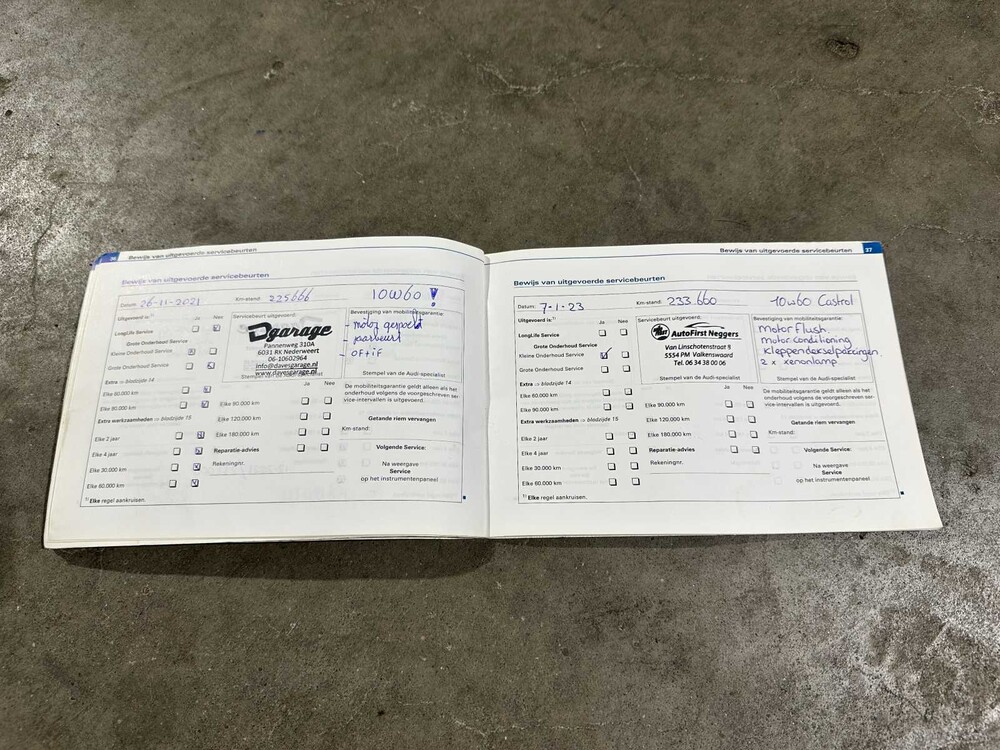 26 Bewijs van uitgevoerde servicebeurten
Bewijs van uitgevoerde servicebeurten
Datum: 26-11-2021 Km-stand: 225.666 10W60 !
Uitgevoerd is:¹⁾ Ja Nee
LongLife Service
Grote Onderhoud Service
Kleine Onderhoud Service
Grote Onderhoud Service
Extra -> bladzijde 14
Elke 60.000 km
Elke 90.000 km
Extra werkzaamheden -> bladzijde 15
Elke 2 jaar
Elke 4 jaar
Elke 30.000 km
Elke 60.000 km
¹⁾ Elke regel aankruisen.
Servicebeurt uitgevoerd:
Dgarage
Pannenweg 310A
6031 RK Nederweert
06-10602964
info@davesgarage.nl
www.davesgarage.nl
Stempel van de Audi-specialist
Ja Nee
Elke 90.000 km
Elke 120.000 km
Elke 180.000 km
Reparatie-advies
Rekeningnr.
Bevestiging van mobiliteitsgarantie:
- motor gespoeld
- parbeurt
- of+if
Stempel van de Audi-specialist
De mobiliteitsgarantie geldt alleen als het
onderhoud volgens de voorgeschreven ser-
vice-intervallen is uitgevoerd.
Getande riem vervangen
Km-stand:
Volgende Service:
Na weergave
Service
op het instrumentenpaneel
Bewijs van uitgevoerde servicebeurten 27
Bewijs van uitgevoerde servicebeurten
Datum: 7-1-23 Km-stand: 233.660 10w60 Castrol
Uitgevoerd is:¹⁾ Ja Nee
LongLife Service
Grote Onderhoud Service
Kleine Onderhoud Service
Grote Onderhoud Service
Extra -> bladzijde 14
Elke 60.000 km
Elke 90.000 km
Extra werkzaamheden -> bladzijde 15
Elke 2 jaar
Elke 4 jaar
Elke 30.000 km
Elke 60.000 km
¹⁾ Elke regel aankruisen.
Servicebeurt uitgevoerd:
AutoFirst Neggers
Van Linschotenstraat 8
5554 PM Valkenswaard
Tel. 06 34 38 00 06
Stempel van de Audi-specialist
Ja Nee
Elke 90.000 km
Elke 120.000 km
Elke 180.000 km
Reparatie-advies
Rekeningnr.
Bevestiging van mobiliteitsgarantie:
Motor flush
motor conditiening
kleppendekselpakkingen
2 x xenonlamp
Stempel van de Audi-specialist
De mobiliteitsgarantie geldt alleen als het
onderhoud volgens de voorgeschreven ser-
vice-intervallen is uitgevoerd.
Getande riem vervangen
Km-stand:
Volgende Service:
Na weergave
Service
op het instrumentenpaneel